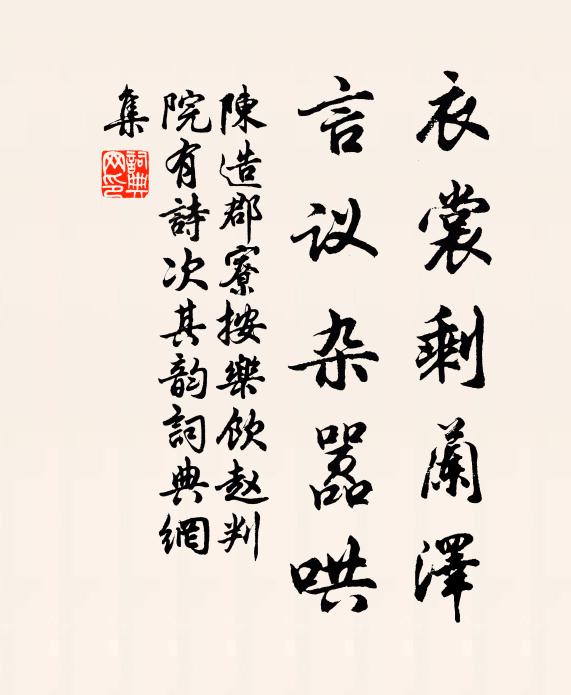 衣裳剩蘭澤
言议杂嚣哄
陳造郡寮按樂飲赵判
院有詩次其韵詞典網
集
詞典網印